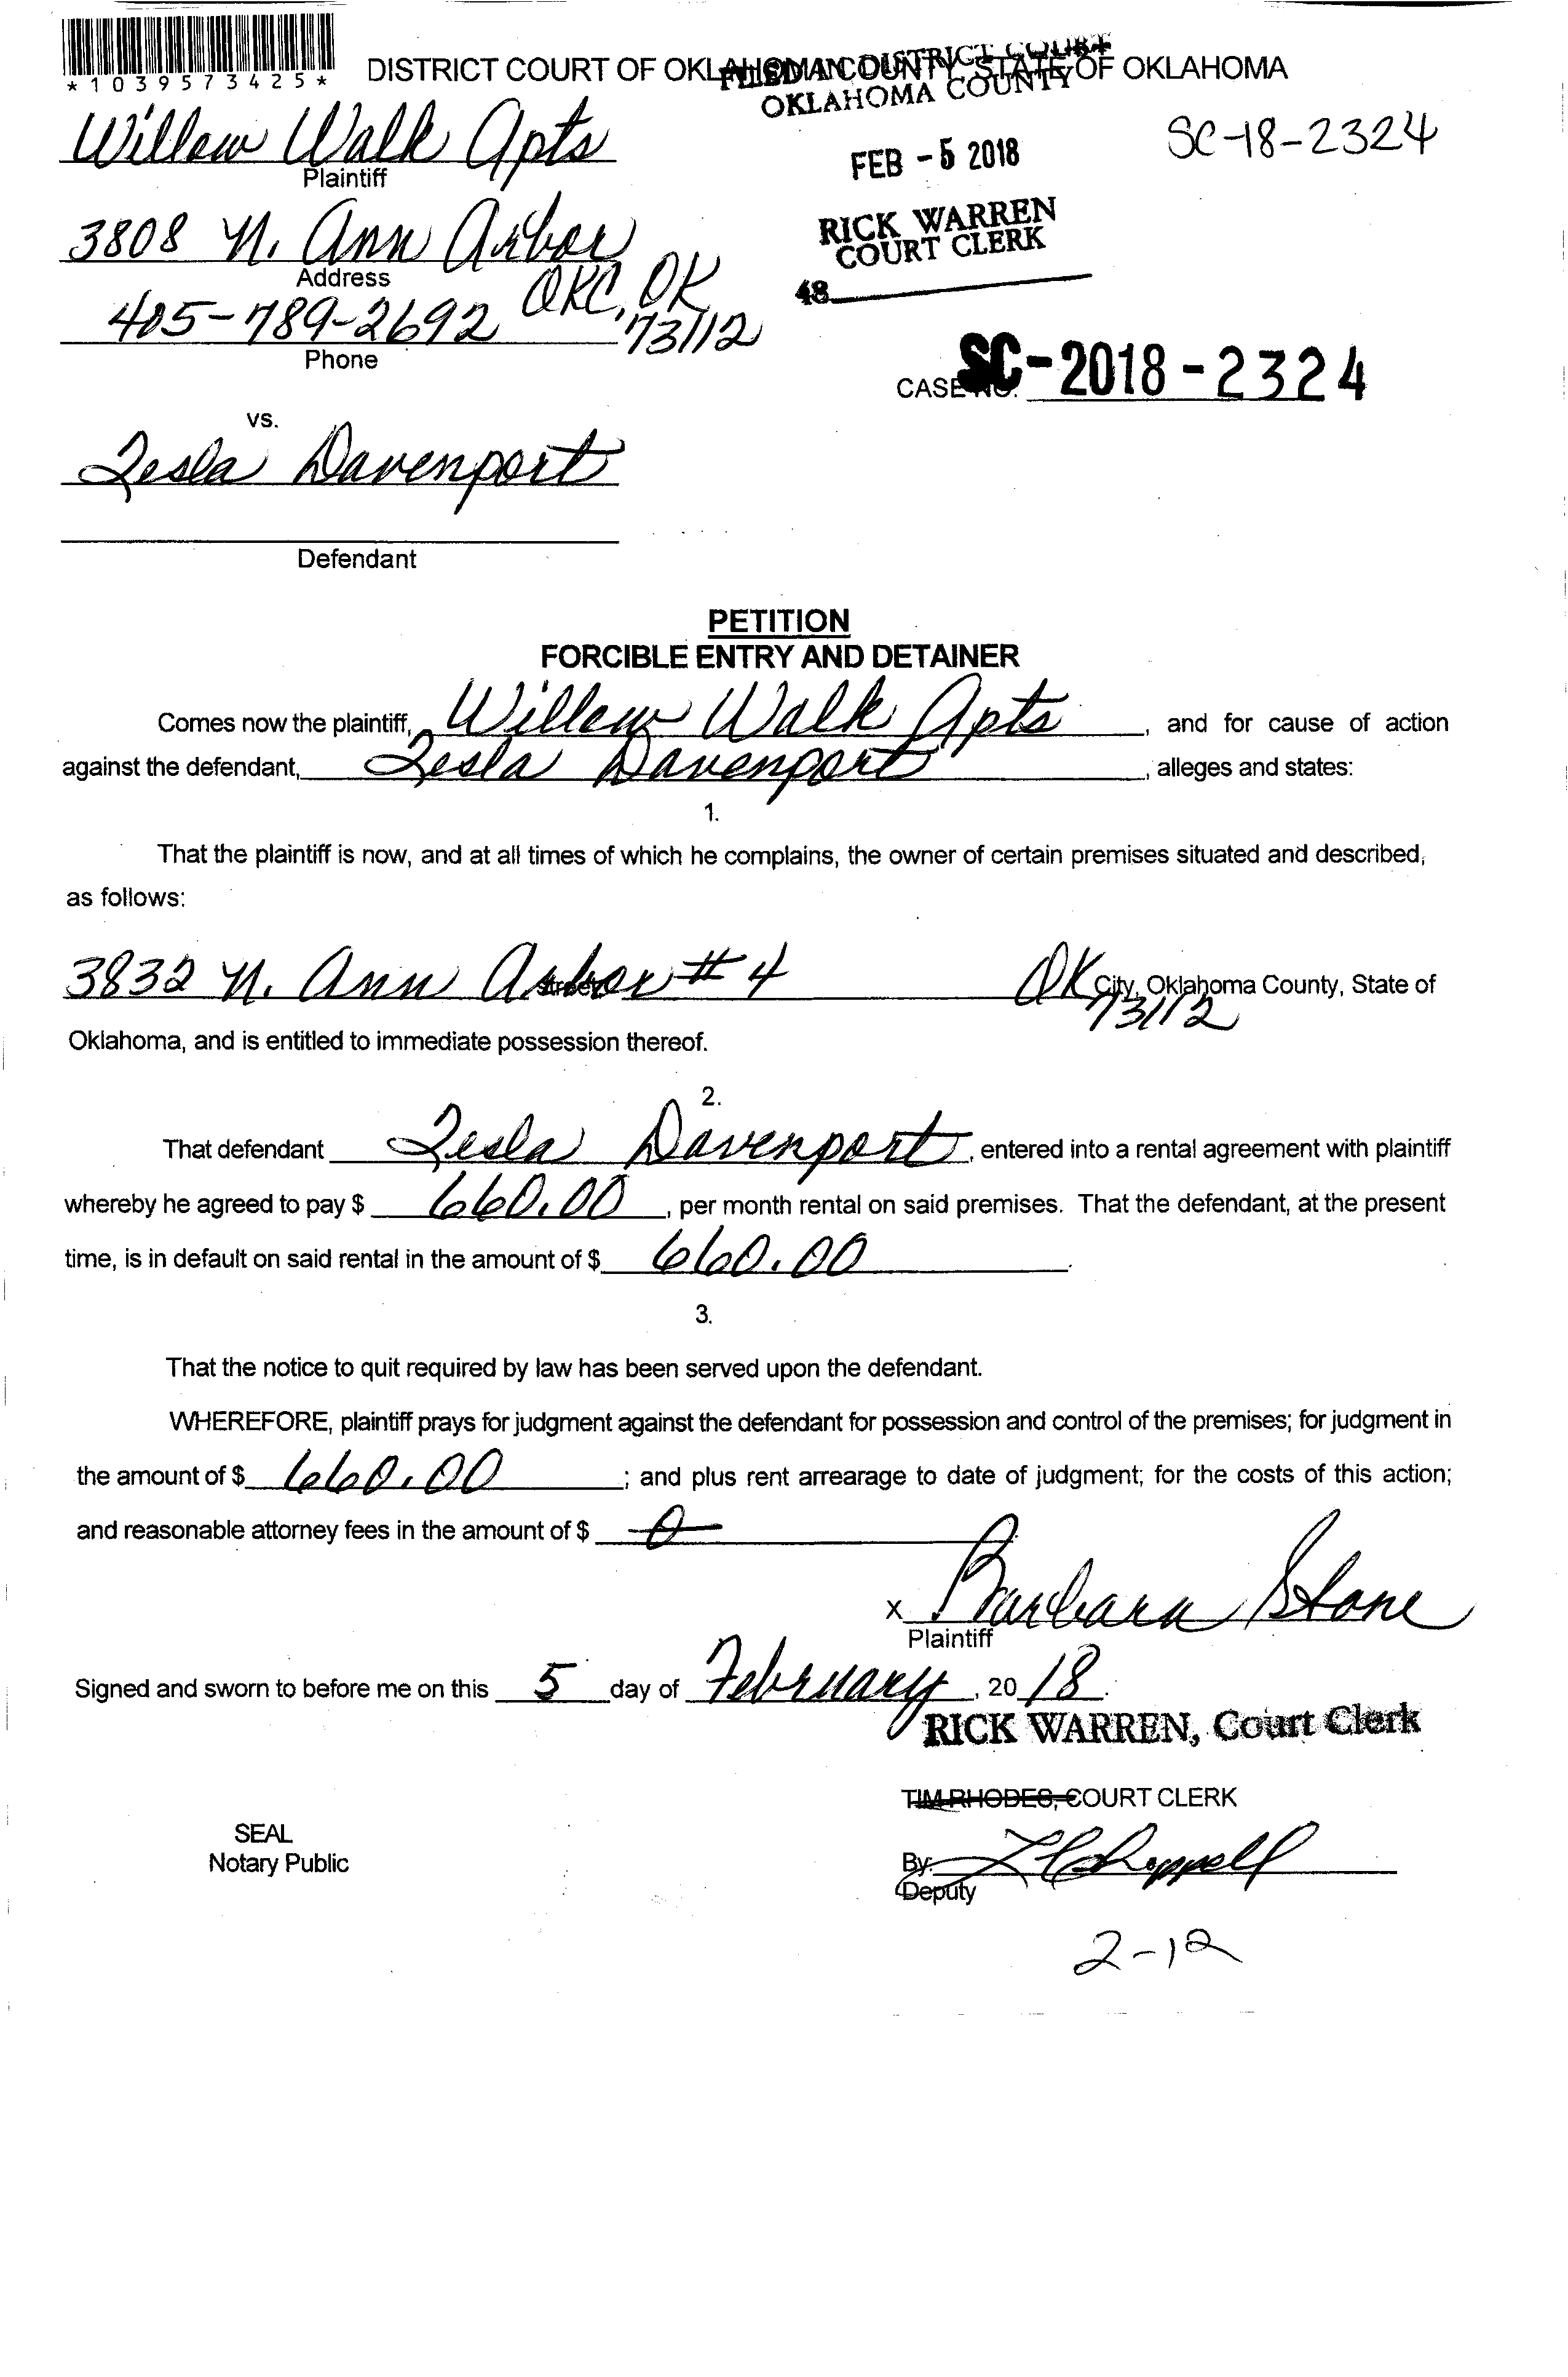 *1039573425*
DISTRICT COURT OF OKLAHOMA COUNTY, STATE OF OKLAHOMA
FILED IN DISTRICT COURT
OKLAHOMA COUNTY
FEB - 5 2018
SC-18-2324
RICK WARREN
COURT CLERK
48
Willow Walk Apts
Plaintiff
3808 N. Ann Arbor
Address
OKC, OK
73112
405-789-2692
Phone
CASE NO. SC-2018-2324
vs.
Tesla Davenport
Defendant
PETITION
FORCIBLE ENTRY AND DETAINER
Comes now the plaintiff, Willow Walk Apts, and for cause of action
against the defendant, Tesla Davenport, alleges and states:
1.
That the plaintiff is now, and at all times of which he complains, the owner of certain premises situated and described,
as follows:
3832 N. Ann Arbor #4 OK City, Oklahoma County, State of
Street
73112
Oklahoma, and is entitled to immediate possession thereof.
2.
That defendant Tesla Davenport, entered into a rental agreement with plaintiff
whereby he agreed to pay $ 660.00, per month rental on said premises. That the defendant, at the present
time, is in default on said rental in the amount of $ 660.00.
3.
That the notice to quit required by law has been served upon the defendant.
WHEREFORE, plaintiff prays for judgment against the defendant for possession and control of the premises; for judgment in
the amount of $ 660.00; and plus rent arrearage to date of judgment; for the costs of this action;
and reasonable attorney fees in the amount of $ 0
X Barbara Stone
Plaintiff
Signed and sworn to before me on this 5 day of February, 2018.
RICK WARREN, Court Clerk
TIM RHODES, COURT CLERK
SEAL
Notary Public
By:
Deputy
2-12